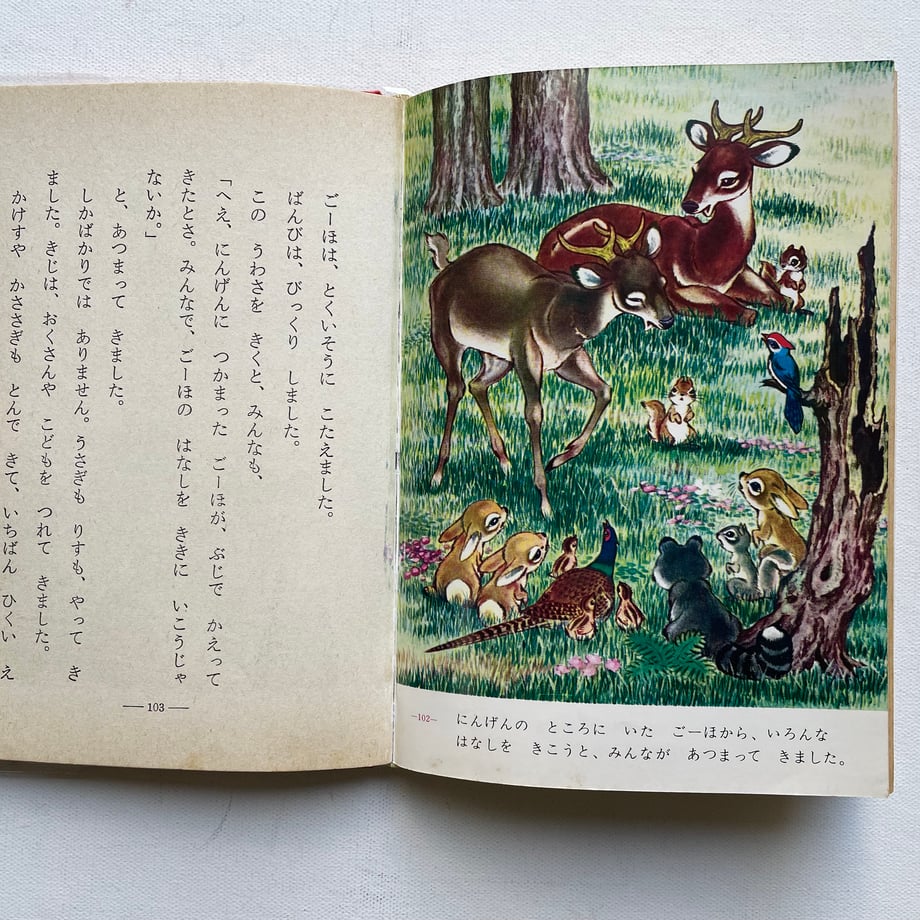 にんげんの ところに いた ごーほから、いろんな
はなしを きこうと、みんなが あつまって きました。
—102—
ごーほは、とくいそうに こたえました。
ばんびは、びっくり しました。
この うわさを きくと、みんなも、
「へえ、にんげんに つかまった ごーほが、ぶじで かえって
きたとさ。みんなで、ごーほの はなしを ききに いこうじゃ
ないか。」
と、あつまって きました。
しかばかりでは ありません。うさぎも りすも、やって き
ました。きじは、おくさんや こどもを つれて きました。
かけすや かささぎも とんで きて、いちばん ひくい え
—103—